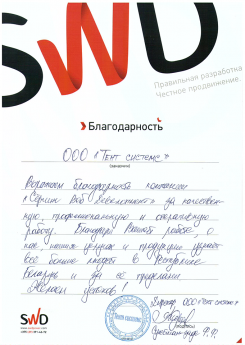 SWD
Правильная разработка
Честное продвижение.
Благодарность
ООО "Тент системс"
Выражаем благодарность компании
"Сервис Веб Девелопмент" за качествен-
ную, профессиональную и оперативную
работу. Благодаря Вашей работе о
нас, наших услугах и продукции узнают
всё больше людей в Республике
Беларусь и за её пределами.
Желаем успехов!
Директор ООО "Тент системс"
SWD